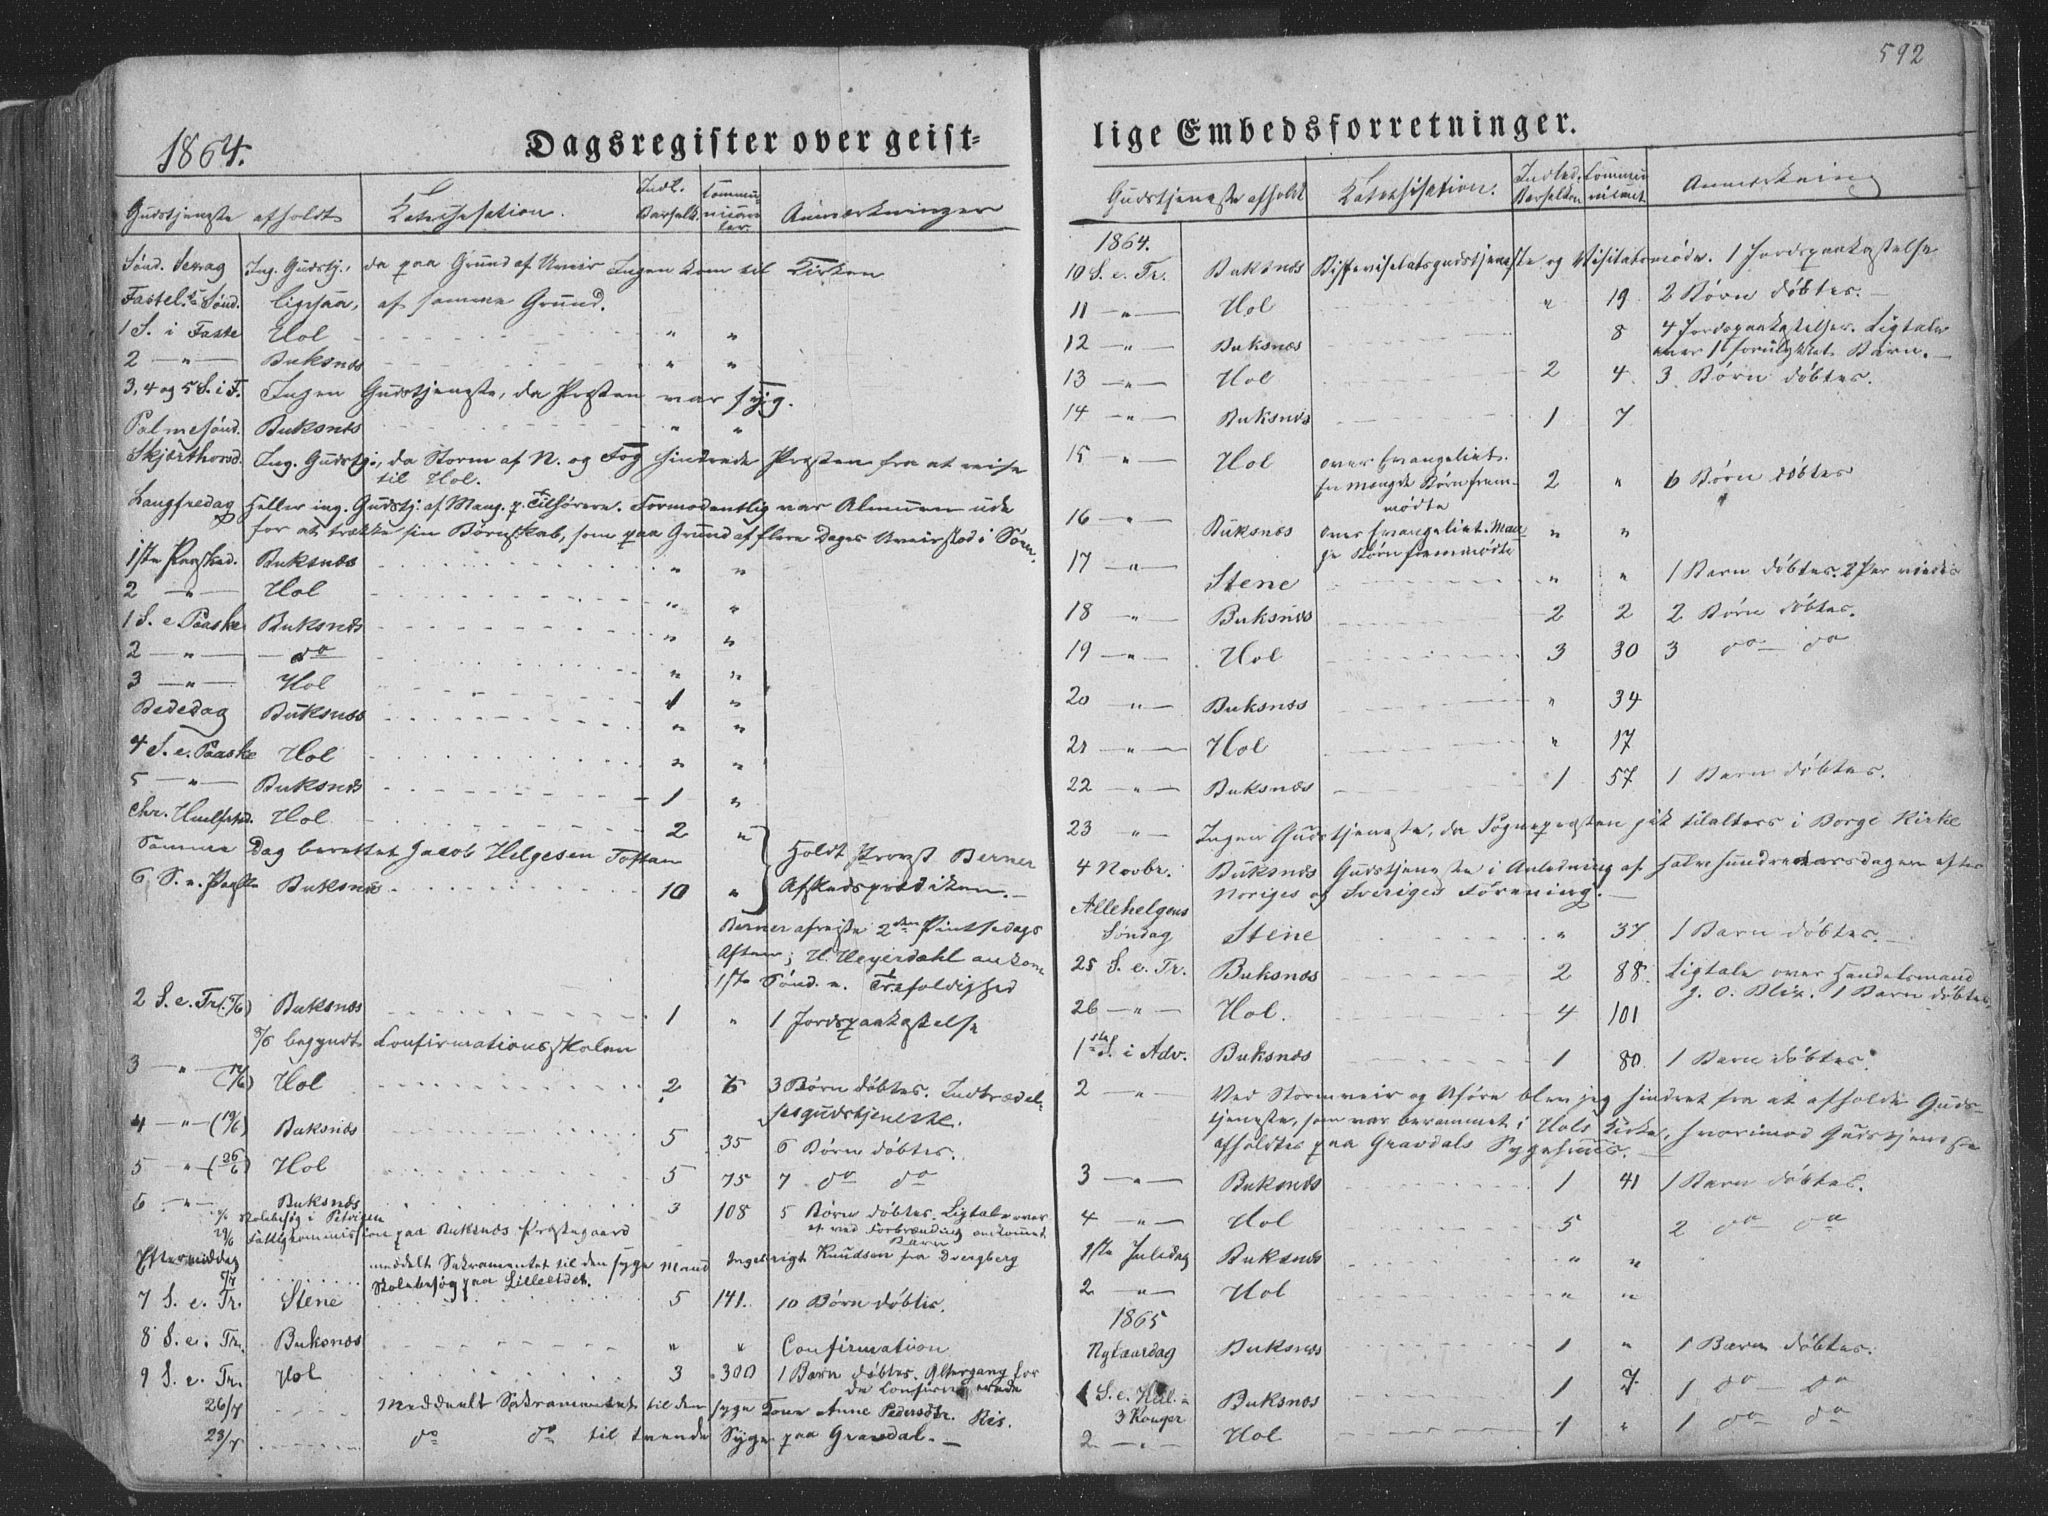 592
1864.
Dagsregister over geist-
Gudstjeneste afholdt Katechisation. Indl. Barselk. Communicanter Anmærkninger
Sønd. Sexag Ing. Gudstj., da paa Grund af Uveir Ingen kom til Kirken
Fastel. Sønd. ligesaa, af samme Grund.
1 S. i Faste Hol " "
2 — " — Buksnæs " "
3, 4 og 5 S. i F. Ingen Gudstjeneste, da Præsten var syg.
Palmesønd. Buksnæs " "
Skjærthorsd. Ing. Gudstj., da Storm af N. og Fog hindrede Præsten fra at reise
til Hol.
Langfredag Heller ing. Gudstj. af Mang. p. Tilhørere. Formodentlig var Almuen ude
for at trække sin Børnskab, som paa Grund af flere Dages Uveir stod i Søen.
1ste Paasked. Buksnæs " "
2 — " — Hol " "
1 S. e. Paaske Buksnæs " "
2 — " — do " "
3 — " — Hol 1 "
Bededag Buksnæs " "
4 S. e. Paaske Hol " "
5 — " — Buksnæs 1 "
Chr. Himlfartsd. Hol 2 "
Samme Dag berettet Jacob Helgesen Toftan
6 S. e. Paaske Buksnæs 10 " Holdt Provst Berner
Afskedsprædiken. —
Berner afreiste 2den Pintsedags
Aften; H. Heyerdahl ankom
1ste Sønd. e. Trefoldighed
2 S. e. Tr. (5/6) Buksnæs 1 " 1 Jordspaakastelse
8/6 begyndte Confirmationsskolen
3 — " — (12/6) Hol 2 76 3 Børn døbtes. Indtrædel-
sesgudstjeneste.
4 — " — (19/6) Buksnæs 5 35 6 Børn døbtes.
5 " (26/6) Hol 5 75 7 do do
6 — " — Buksnæs 3 108 5 Børn døbtes. Ligtale over
et ved Forbrænding omkommet
Barn
Skolebesøg i Petvigen
29/6 Fattigkommission paa Buksnæs Præstegaard
Eftermiddag meddelt Sakramentet til den syge Mand Ingebrigt Knudsen fra Dvergberg
Skolebesøg paa Lilleeidet.
7 S. e. Tr. Stene 5 141. 10 Børn døbtes.
8 S. e. Tr. Buksnæs " " Confirmation
9 S. e. Tr. Hol 3 300 1 Barn døbtes. Altergang for
de Confirmerede
26/7 Meddeelt Sakramentet til den syge Kone Anne Pedersdtr. Ris.
23/7 do do til trende Syge paa Gravdal. —
lige Embedsforretninger.
Gudstjeneste afholdt Katechisation. Indled. Barselkon. Communicant Anmærkning
1864.
10 S. e. Tr. Buksnæs Bispevisitatsgudstjeneste og Visitatsmøde. 1 Jordspaakastelse
11 — " — Hol " 19 2 Børn døbtes. —
12 — " — Buksnæs 8 4 Jordspaakastelser. Ligtale
over 1 forulykket Barn. —
13 — " — Hol 2 4 3 Børn døbtes.
14 — " — Buksnæs 1 7
15 — " — Hol over Evangeliet.
en Mængde Børn frem-
mødte 2 " 6 Børn døbtes
16 — " — Buksnæs over Evangeliet. Man-
ge Børn fremmødte " "
17 — " — Stene " " 1 Barn døbtes. 2 Par viedes
18 — " — Buksnæs 2 2 2 Børn døbtes.
19 — " — Hol 3 30 3 do — do
20 — " — Buksnæs " 34
21 — " — Hol " 17
22 — " — Buksnæs 1 57 1 Barn døbtes.
23 — " — Ingen Gudstjeneste, da Sognepræsten gik tilalters i Borge Kirke
4 Novbr. Buksnæs Gudstjeneste i Anledning af halvehundredaarsdagen efter
Norges og Sveriges Forening. —
Allehelgens
Søndag Stene " 37 1 Barn døbtes. —
25 S. e. Tr. Buksnæs 2 88. Ligtale over Handelsmand
J. O. Blix. 1 Barn døbtes.
26 — " — Hol. 4 101
1ste S. i Adv. Buksnæs 1 80. 1 Barn døbtes.
2 — " — Ved Stormveir og Uføre blev jeg hindret fra at afholde Guds-
tjeneste, som var berammet i Hols Kirke, hvorimod Gudstjeneste
afholdtes paa Gravdals Sygehuus. —
3 — " — Buksnæs 1 41 1 Barn døbtes.
4 — " — Hol 5 2 do do
1ste Juledag Buksnæs " "
2 — " — Hol " "
1865
Nytaarsdag Buksnæs 1 " 1 Barn døbtes.
1 S. e. Hel. 3 Konger Buksnæs 1 7. 1 do — do
2 — " — Hol 1 " 1 do do